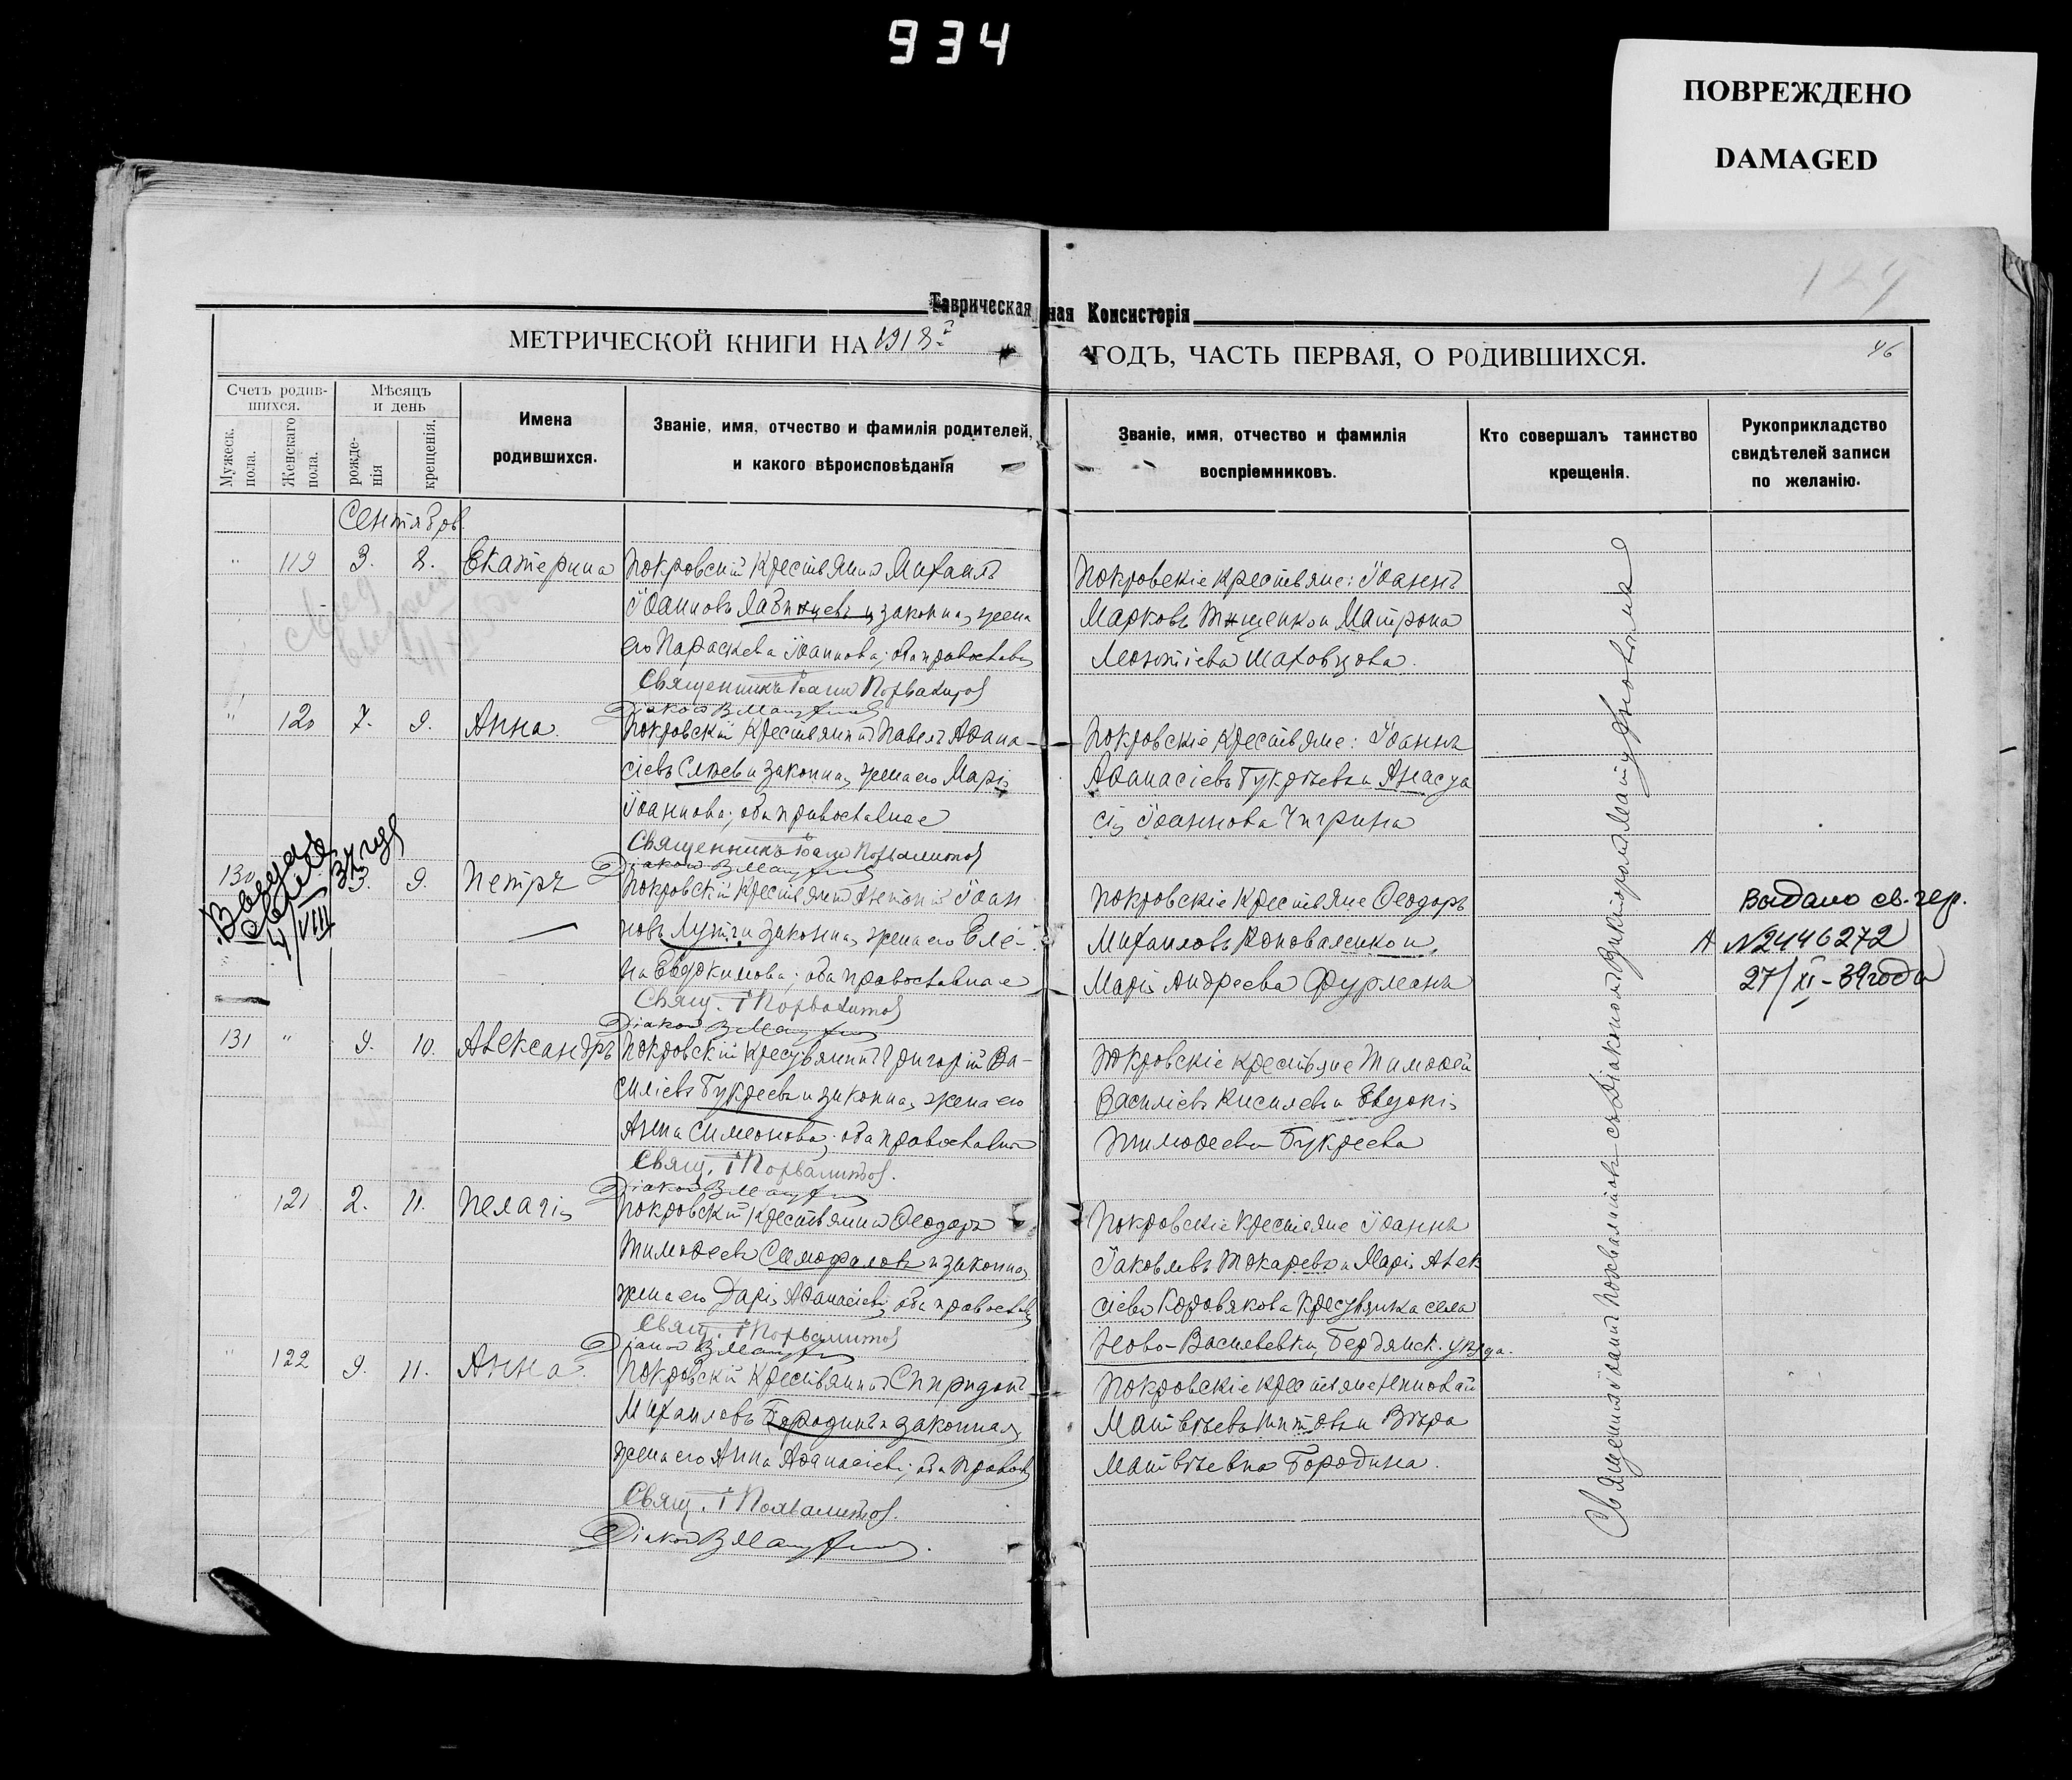 934
ПОВРЕЖДЕНО
DAMAGED
Таврическая ная Консисторія
124
МЕТРИЧЕСКОЙ КНИГИ НА 1918 ГОДЪ, ЧАСТЬ ПЕРВАЯ, О РОДИВШИХСЯ.
46
Счетъ родив-
шихся.
Мужеск.
пола.
Женскаго
пола.
Мѣсяцъ
и день
рожде-
нія
крещенія.
Имена
родившихся.
Званіе, имя, отчество и фамилія родителей,
и какого вѣроисповѣданія
Званіе, имя, отчество и фамилія
воспріемниковъ.
Кто совершалъ таинство
крещенія.
Рукоприкладство
свидѣтелей записи
по желанію.
Сентябрь.
" 119 3. 8. Екатерина
Покровскій крестьянинъ Михаилъ
Іоанновъ и законная жена
его Параскева Іоаннова; оба православн
Священникъ Іоаннъ
Діаконъ В
Покровскіе крестьяне: Іоаннъ
Марковъ Тищенко и Матрона
Леонтіева Шаховцова.
" 120 7. 9. Анна.
Покровскій крестьянинъ Павелъ Афана-
сіевъ и законная жена его Марія
Іоаннова; оба православные
Священникъ Іоаннъ
Діаконъ В
Покровскіе крестьяне: Іоаннъ
Афанасіевъ Букрѣевъ и Анаста
сія Іоаннова Чигрина
130 3. 9. Петръ
Покровскій крестьянинъ Антоній Іоан
новъ и законная жена его Еле-
на Евдокимова; оба православные
Свящ. І
Діаконъ В
Покровскіе крестьяне Ѳеодоръ
Михаиловъ Коноваленко и
Марія Андреева Фурманъ
Выдано св.
А №2446272
27/XI-39 года
131 " 9. 10. Александръ
Покровскій крестьянинъ Григорій Ва-
силіевъ Букреевъ и законная жена его
Анна Симеонова; оба православные
Свящ. І
Діаконъ В
Покровскіе крестьяне Тимофей
Василіевъ Киселевъ и Евдокія
Тимофеева Букреева
" 121 2. 11. Пелагія
Покровскій крестьянинъ Ѳеодоръ
Тимофеевъ Самофаловъ и законная
жена его Дарія Афанасіева; оба православн
Свящ. І
Діаконъ В
Покровскіе крестьяне Іоаннъ
Іаковлевъ Токаревъ и Марія Алек
сіева Коровякова крестьянка села
Ново-Василевки, Бердянск. уѣзда.
" 122 9. 11. Анна.
Покровскій крестьянинъ Спиридонъ
Михаиловъ Бородинъ и законная
жена его Анна Афанасіева; оба правосл
Свящ. І
Діаконъ В
Покровскіе крестьяне
Матвѣевъ Титовъ и Вѣра
Матвѣевна Бородина.
Священникъ Іоаннъ съ Діакономъ Викторомъ